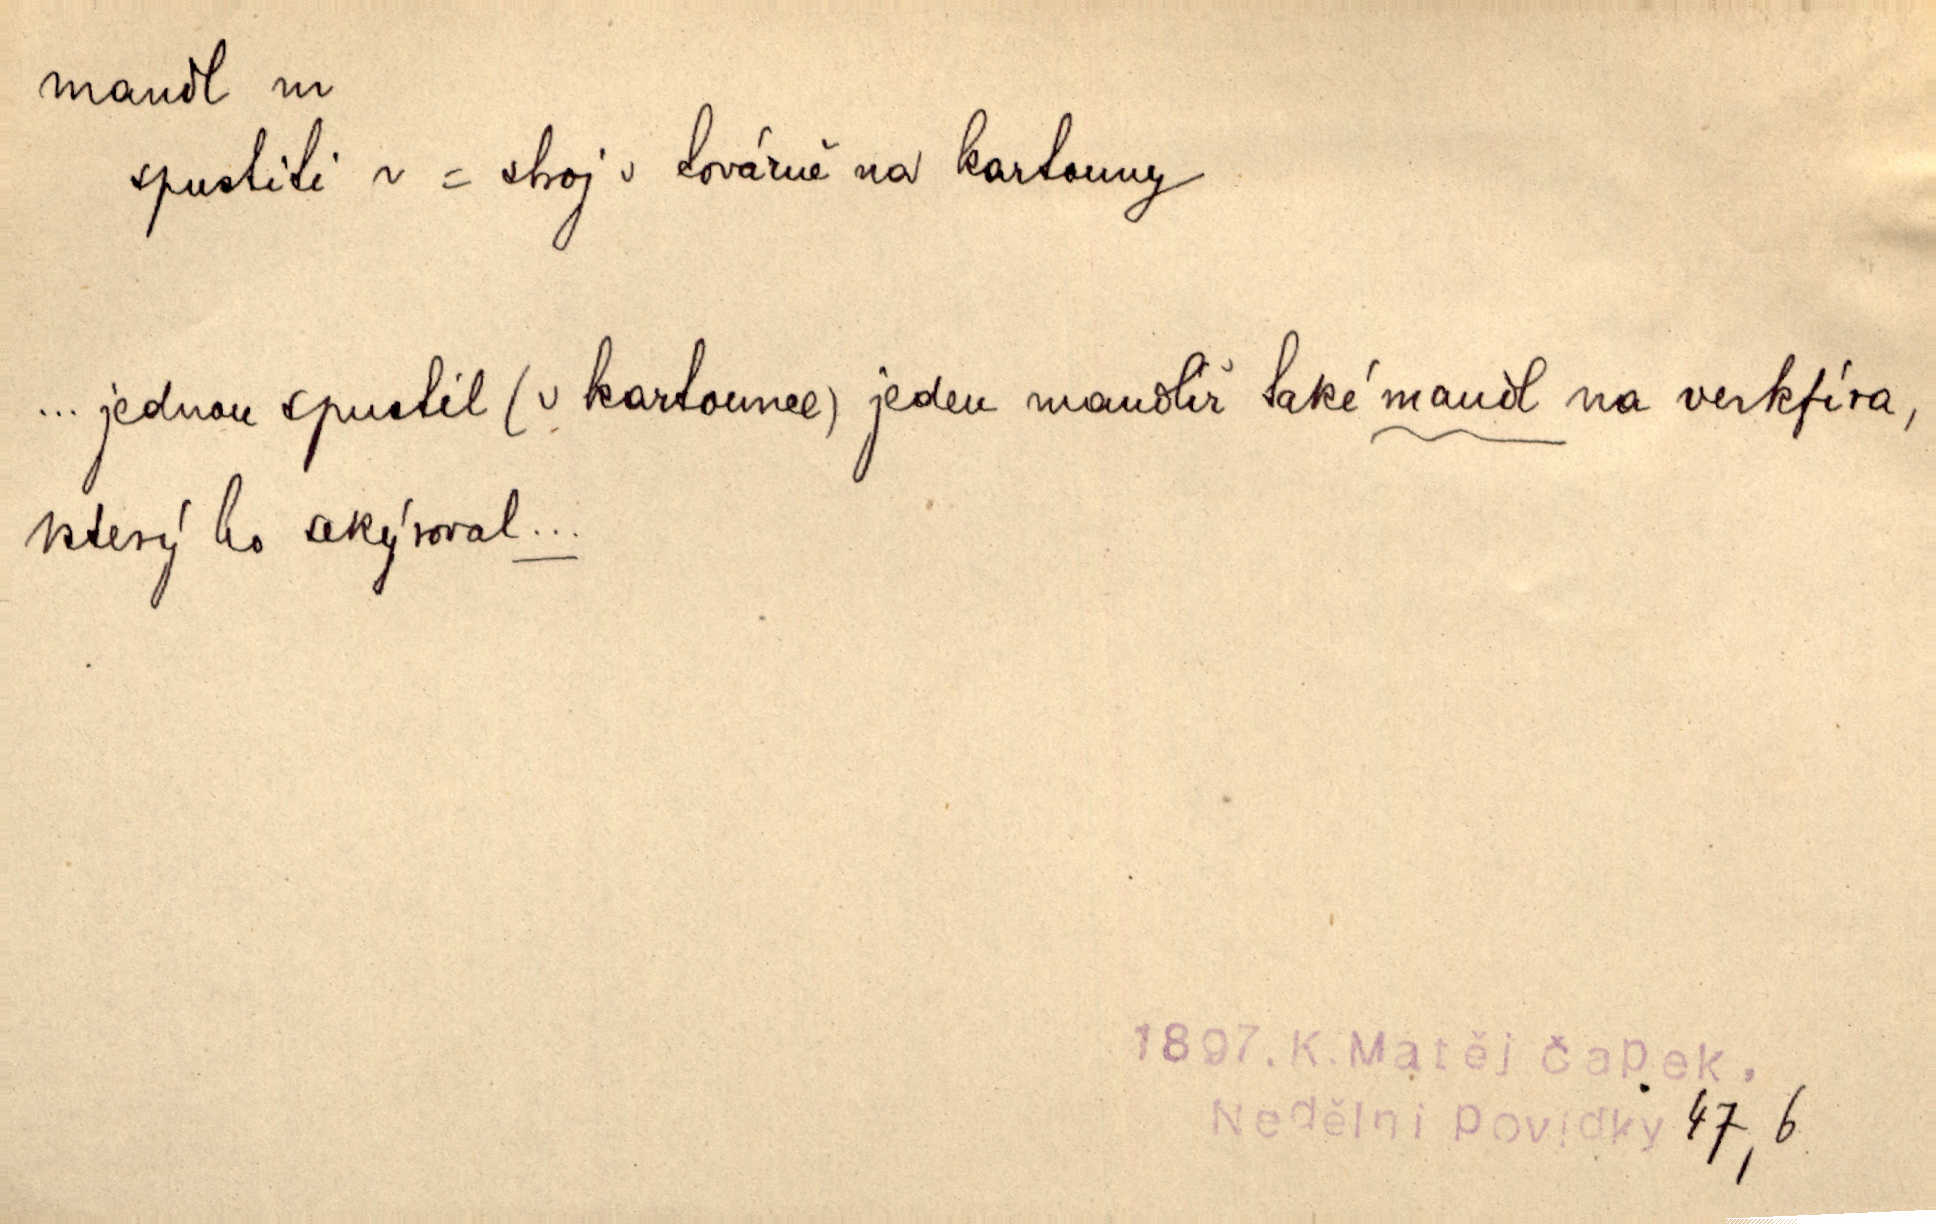 mandl m
spustiti ~ = stroj v továrně na kartouny
... jednou spustil (v kartounce) jeden mandlíř také mandl na verkfíra,
který ho sekýroval ...
1897. K. Matěj Čapek.
Nedělní povídky 47,6